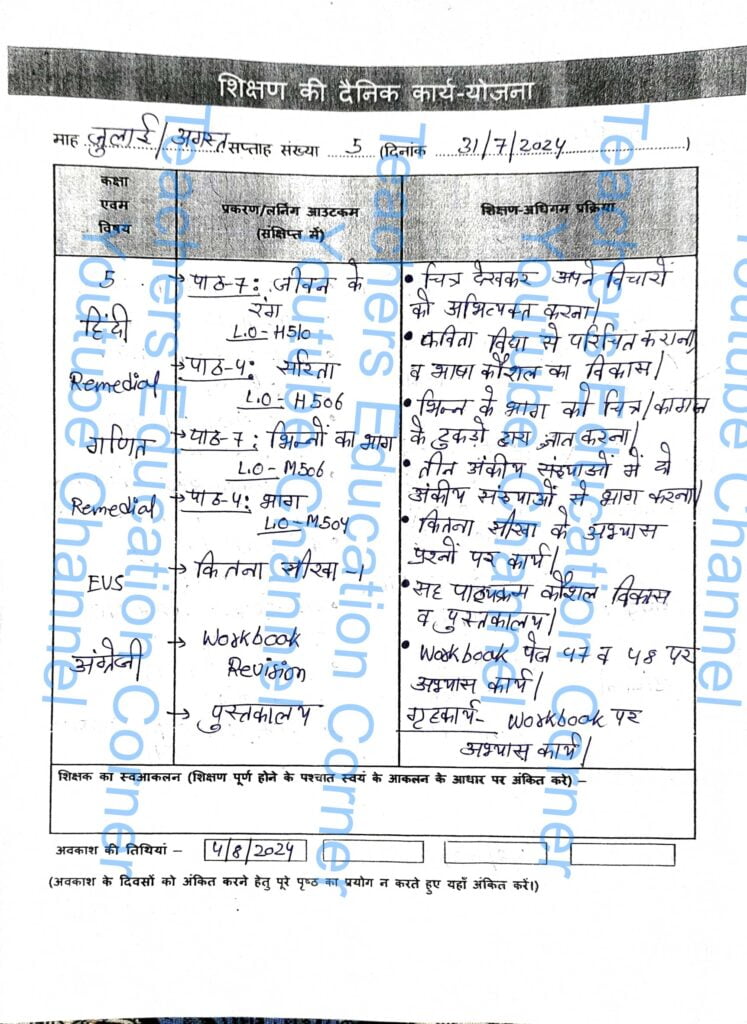 शिक्षण की दैनिक कार्य-योजना
माह जुलाई/अगस्त सप्ताह संख्या 5 (दिनांक 31/7/2024)
कक्षा
एवम
विषय
प्रकरण/लर्निंग आउटकम
(संक्षिप्त में)
शिक्षण-अधिगम प्रक्रिया
5
हिंदी
Remedial
गणित
Remedial
EVS
अंग्रेजी
→ पाठ-7: जीवन के
रंग
L.O-H510
→ पाठ-4: सरिता
L.O-H506
→ पाठ-7: भिन्नों का भाग
L.O-M506
→ पाठ-4: भाग
L.O-M504
→ कितना सीखा -1
→ Workbook
Revision
→ पुस्तकालय
• चित्र देखकर अपने विचारों
को अभिव्यक्त करना।
• कविता विद्या से परिचित कराना,
व भाषा कौशल का विकास।
• भिन्न के भाग को चित्र/कागज
के टुकड़ो द्वारा ज्ञात करना।
• तीन अंकीय संख्याओं में दो
अंकीय संख्याओं से भाग करना।
• कितना सीखा के अभ्यास
प्रश्नों पर कार्य।
• सह पाठ्यक्रम कौशल विकास
व पुस्तकालय।
• Workbook पेज 47 व 48 पर
अभ्यास कार्य।
गृहकार्य- Workbook पर
अभ्यास कार्य।
शिक्षक का स्वआकलन (शिक्षण पूर्ण होने के पश्चात स्वयं के आकलन के आधार पर अंकित करे) –
अवकाश की तिथियां – 4/8/2024
(अवकाश के दिवसों को अंकित करने हेतु पूरे पृष्ठ का प्रयोग न करते हुए यहाँ अंकित करें।)
Teachers Education Corner
Youtube Channel
Teachers Education Corner
Youtube Channel
Teachers Education Corner
Youtube Channel